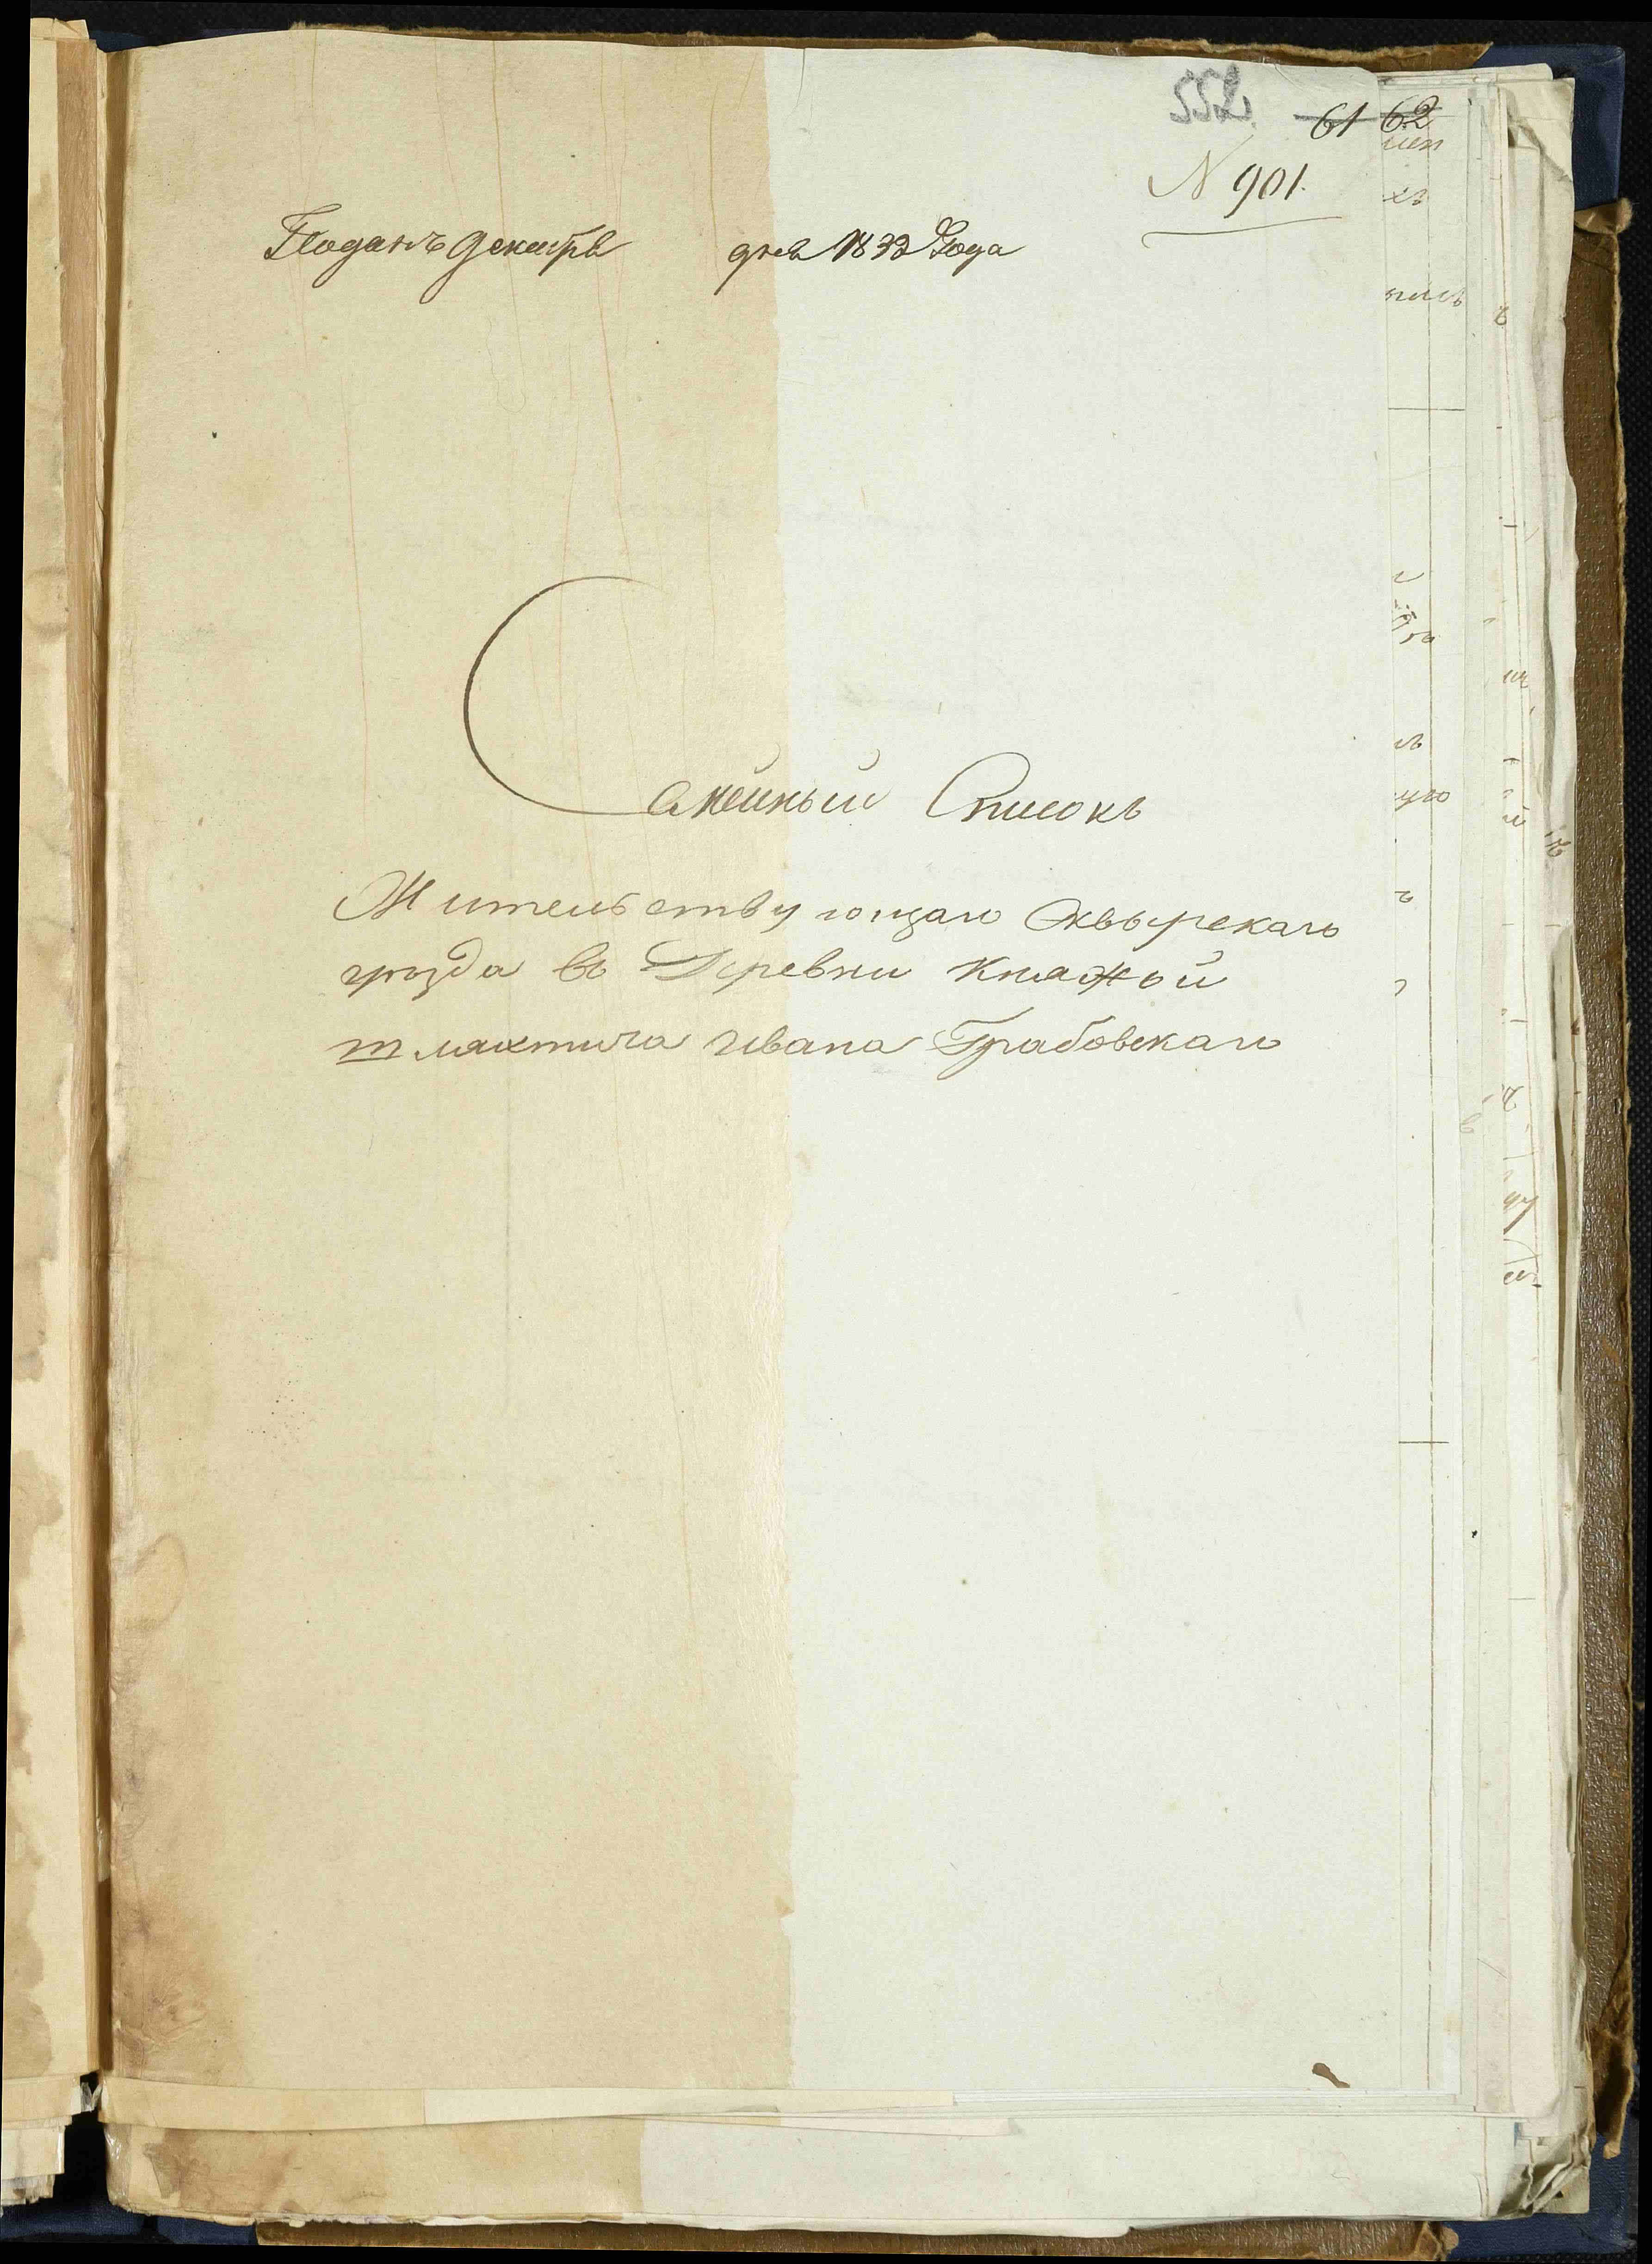 552.
61 62
N 901.
Поданъ декабрь дня 1832 Года
Семейный Списокъ
Жительствующаго Сквырскаго
уѣзда въ Деревни Княжой
шляхтича Ивана Грабовскаго